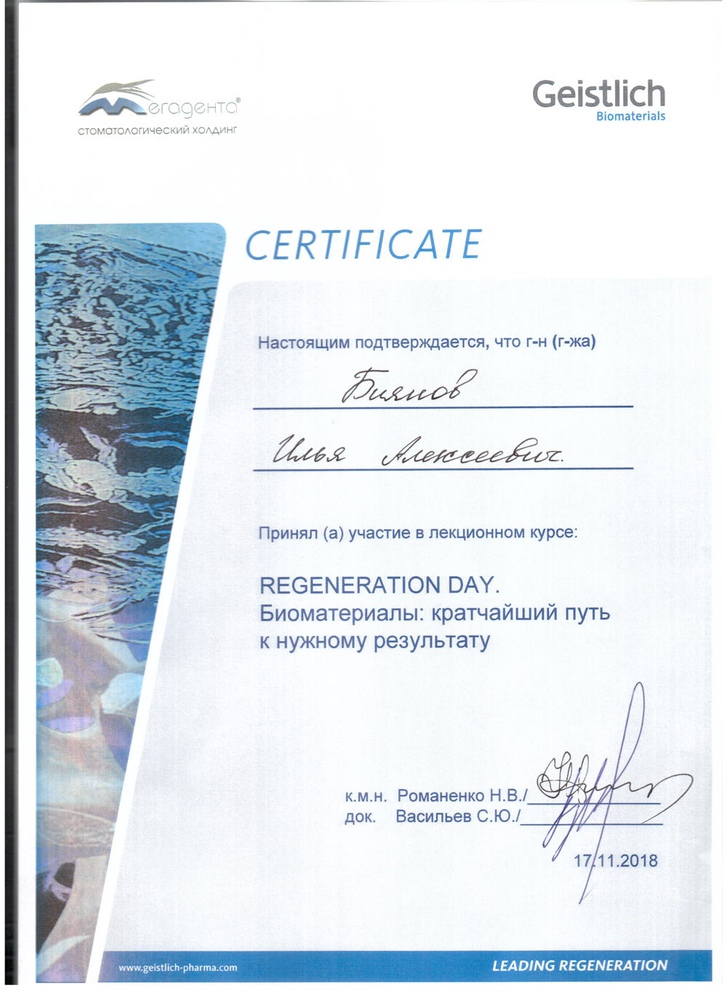 Мегадента®
стоматологический холдинг
Geistlich
Biomaterials
CERTIFICATE
Настоящим подтверждается, что г-н (г-жа)
Биянов
Илья Алексеевич.
Принял (а) участие в лекционном курсе:
REGENERATION DAY.
Биоматериалы: кратчайший путь
к нужному результату
к.м.н. Романенко Н.В./
док. Васильев С.Ю./
17.11.2018
www.geistlich-pharma.com
LEADING REGENERATION